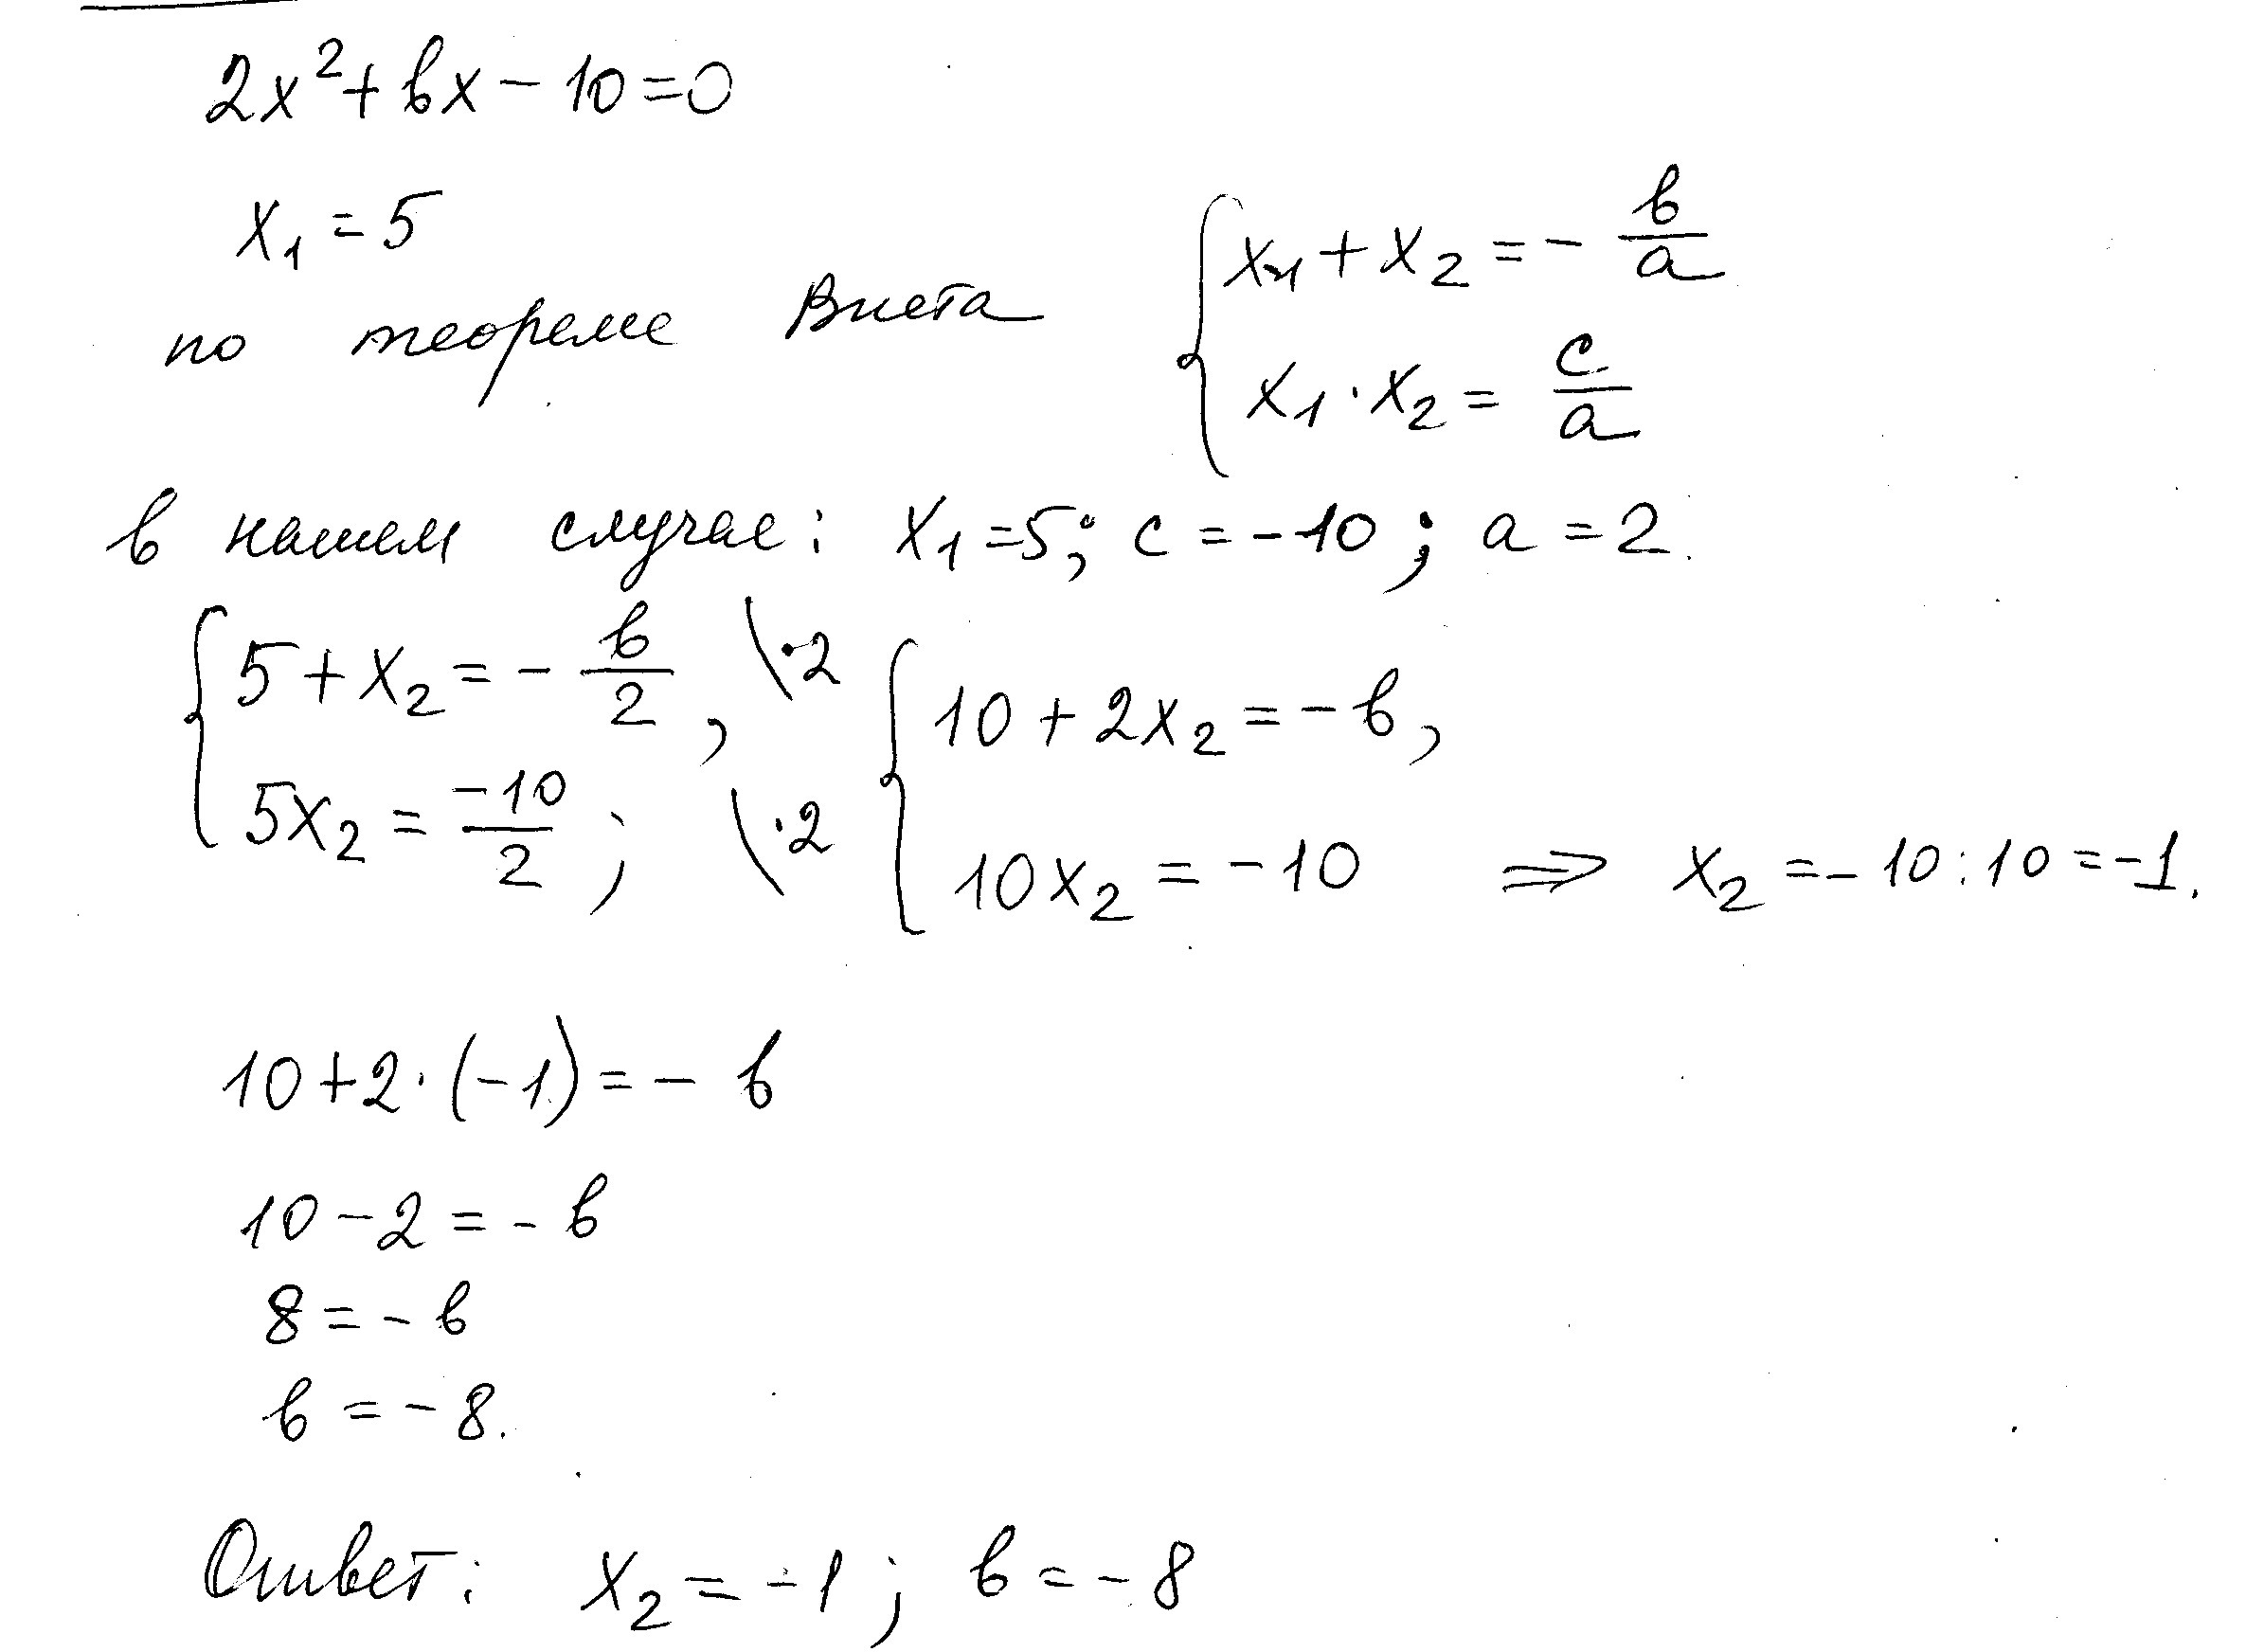 2x² + bx − 10 = 0
x₁ = 5
по теореме Виета { x₁ + x₂ = − b/a
x₁ · x₂ = c/a
в нашем случае: x₁ = 5; c = −10; a = 2.
{ 5 + x₂ = − b/2 , \·2 { 10 + 2x₂ = − b,
5x₂ = −10/2 ; \·2 10x₂ = −10 ⇒ x₂ = −10 : 10 = −1.
10 + 2 · (−1) = − b
10 − 2 = − b
8 = − b
b = − 8.
Ответ: x₂ = −1 ; b = − 8